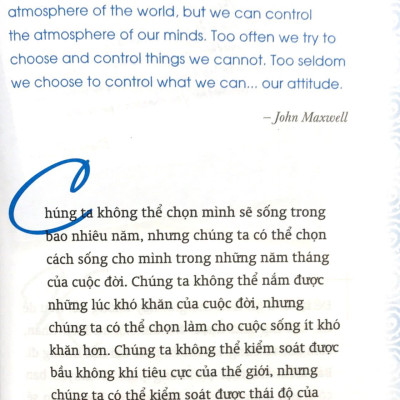 atmosphere of the world, but we can control
the atmosphere of our minds. Too often we try to
choose and control things we cannot. Too seldom
we choose to control what we can... our attitude.
– John Maxwell
Chúng ta không thể chọn mình sẽ sống trong
bao nhiêu năm, nhưng chúng ta có thể chọn
cách sống cho mình trong những năm tháng
của cuộc đời. Chúng ta không thể nắm được
những lúc khó khăn của cuộc đời, nhưng
chúng ta có thể chọn làm cho cuộc sống ít khó
khăn hơn. Chúng ta không thể kiểm soát được
bầu không khí tiêu cực của thế giới, nhưng
chúng ta có thể kiểm soát được thái độ của